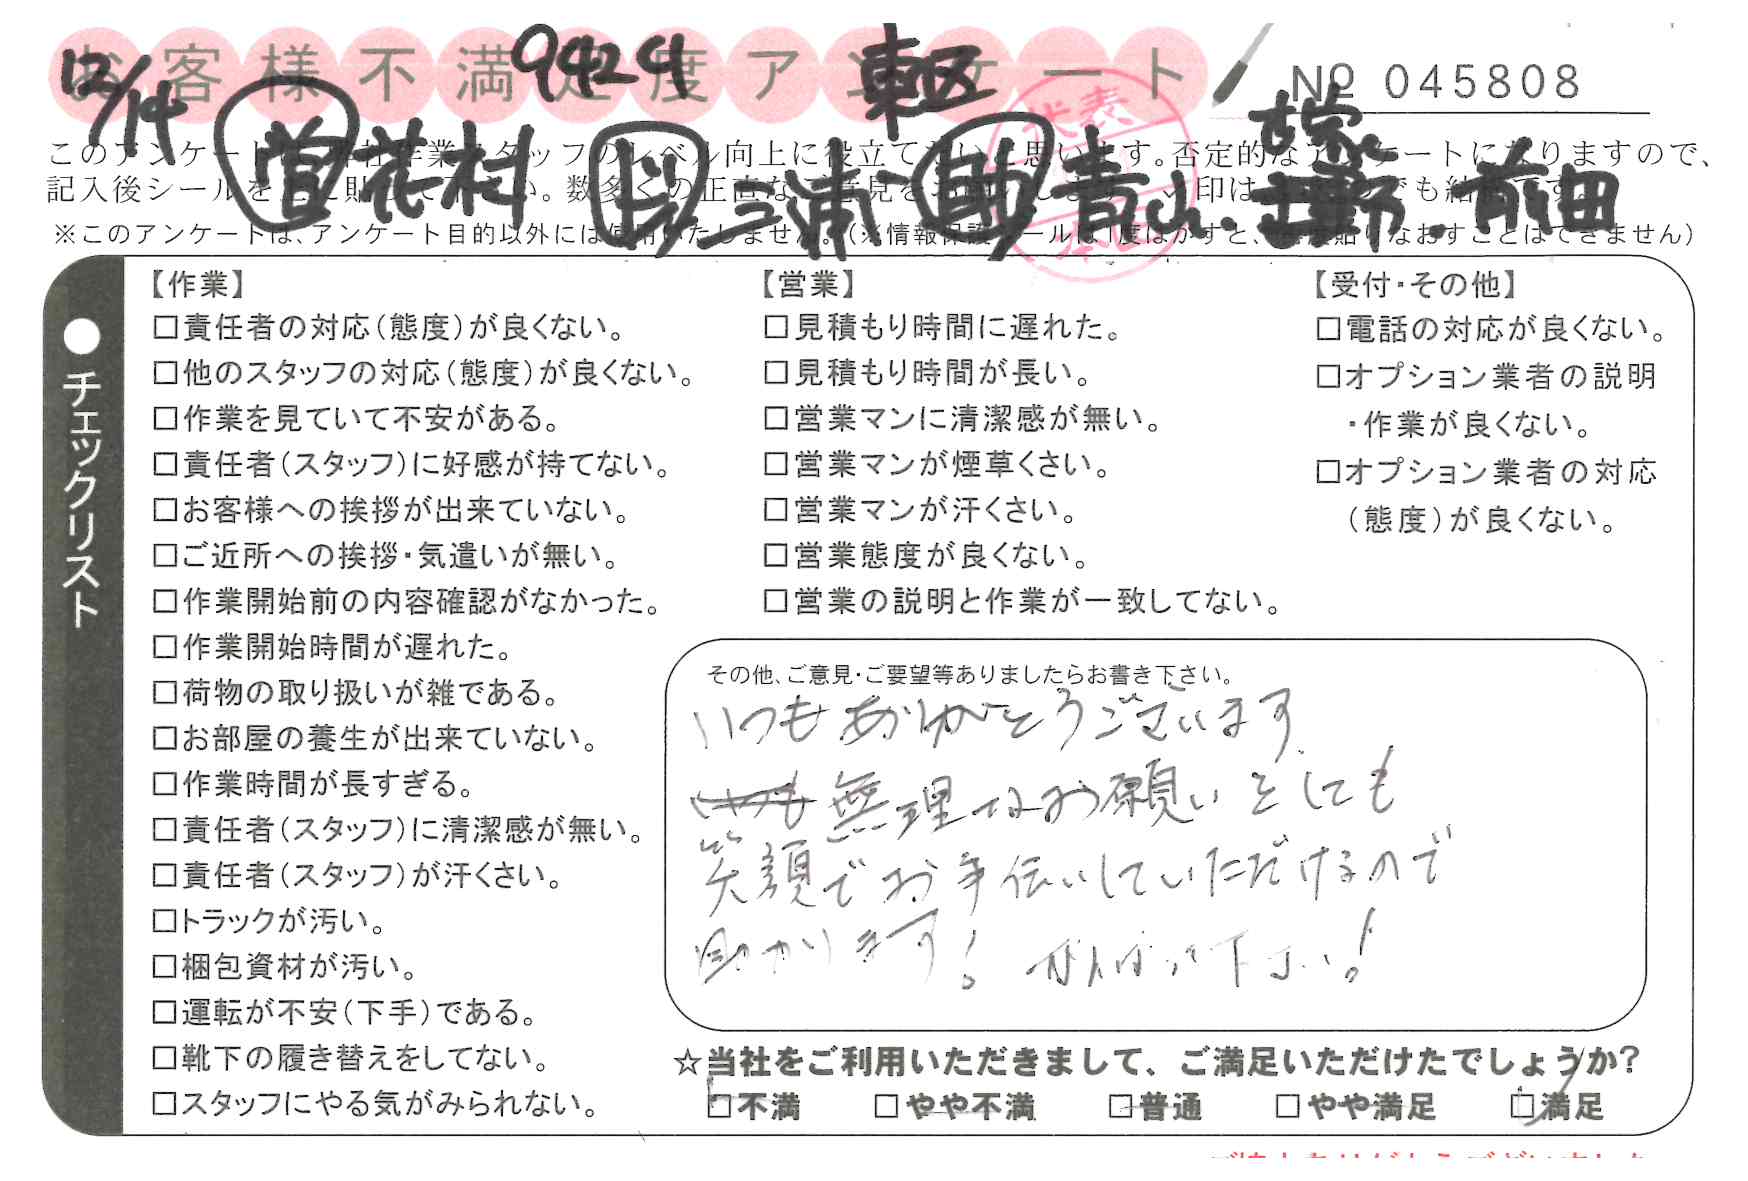 お客様不満足度アンケート
12/14 9424 東区
NO 045808
営 花村 ド 三浦 助 青山・古家・前田
このアンケートは弊社作業スタッフのレベル向上に役立てたいと思います。否定的なアンケートになりますので、
記入後シールを上に貼って下さい。数多くの正直なご意見をお願いします。
※このアンケートは、アンケート目的以外には使用いたしません。(※情報保護シールは1度はがすと、再度貼りなおすことはできません)
●チェックリスト
【作業】
□責任者の対応(態度)が良くない。
□他のスタッフの対応(態度)が良くない。
□作業を見ていて不安がある。
□責任者(スタッフ)に好感が持てない。
□お客様への挨拶が出来ていない。
□ご近所への挨拶・気遣いが無い。
□作業開始前の内容確認がなかった。
□作業開始時間が遅れた。
□荷物の取り扱いが雑である。
□お部屋の養生が出来ていない。
□作業時間が長すぎる。
□責任者(スタッフ)に清潔感が無い。
□責任者(スタッフ)が汗くさい。
□トラックが汚い。
□梱包資材が汚い。
□運転が不安(下手)である。
□靴下の履き替えをしてない。
□スタッフにやる気がみられない。
【営業】
□見積もり時間に遅れた。
□見積もり時間が長い。
□営業マンに清潔感が無い。
□営業マンが煙草くさい。
□営業マンが汗くさい。
□営業態度が良くない。
□営業の説明と作業が一致してない。
【受付・その他】
□電話の対応が良くない。
□オプション業者の説明
・作業が良くない。
□オプション業者の対応
(態度)が良くない。
その他、ご意見・ご要望等ありましたらお書き下さい。
いつもありがとうございます
無理なお願いをしても
笑顔でお手伝いしていただけるので
助かります! がんばって下さい!
☆当社をご利用いただきまして、ご満足いただけたでしょうか?
□不満 □やや不満 □普通 □やや満足 □満足